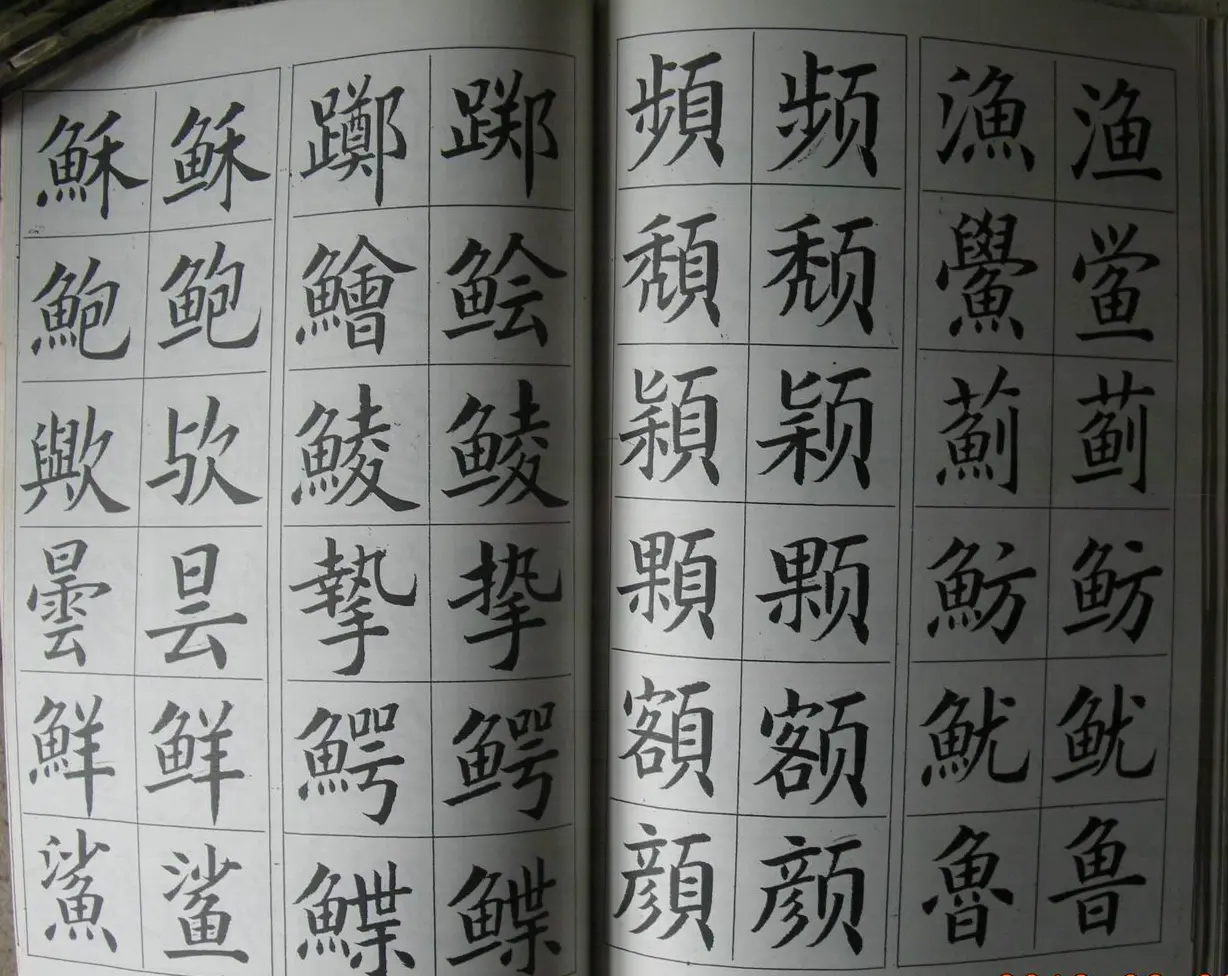 穌 稣 躑 踯 頻 频 漁 渔
鮑 鲍 鱠 鲙 頹 颓 鱟 鲎
歟 欤 鯪 鲮 穎 颖 薊 蓟
曇 昙 摯 挚 顆 颗 魴 鲂
鮮 鲜 鰐 鳄 額 额 魷 鱿
鯊 鲨 鰈 鲽 顔 颜 魯 鲁